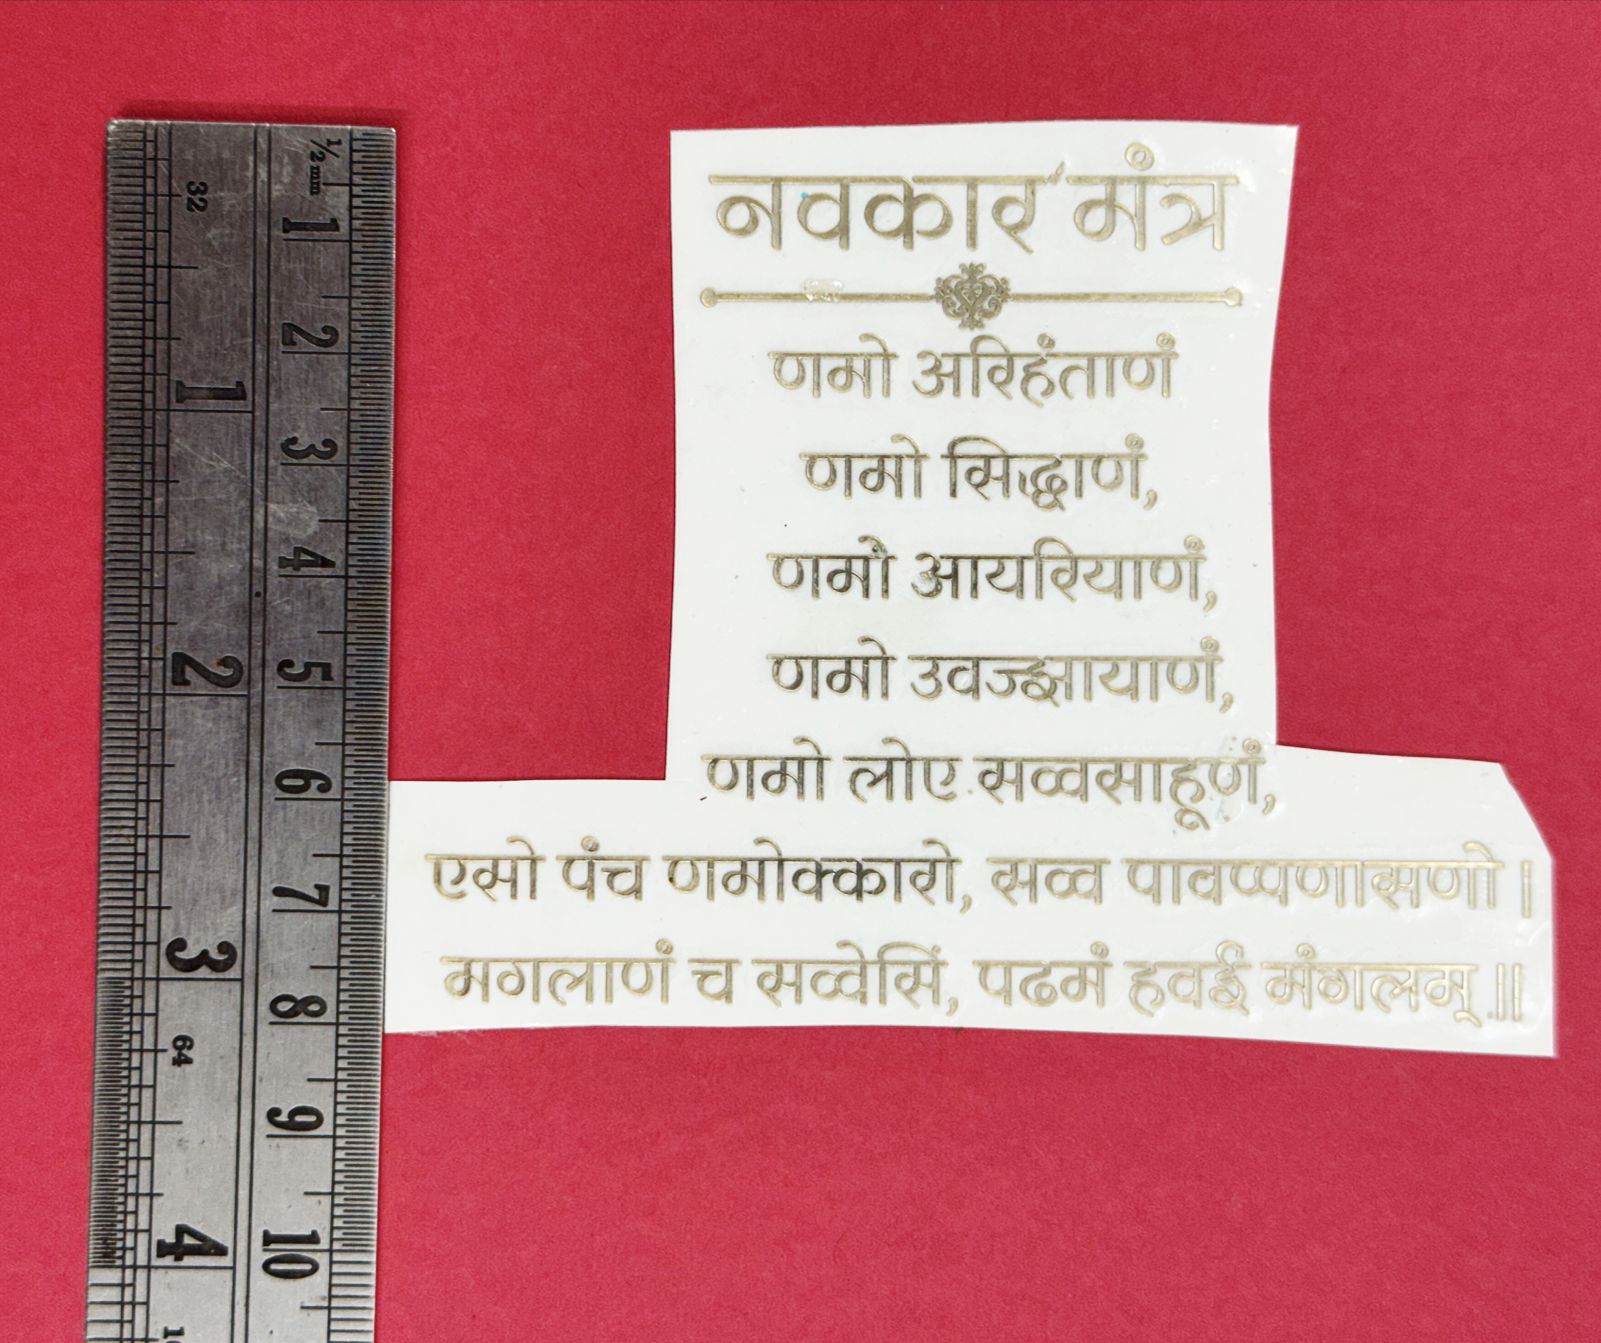 नवकार मंत्र
णमो अरिहंताणं
णमो सिद्धाणं,
णमो आयरियाणं,
णमो उवज्झायाणं,
णमो लोए सव्वसाहूणं,
एसो पंच णमोक्कारो, सव्व पावप्पणासणो ।
मगलाणं च सव्वेसिं, पढमं हवई मंगलम् ॥
1/2 mm
1 2 3 4 5 6 7 8 9 10
32
64
1 2 3 4